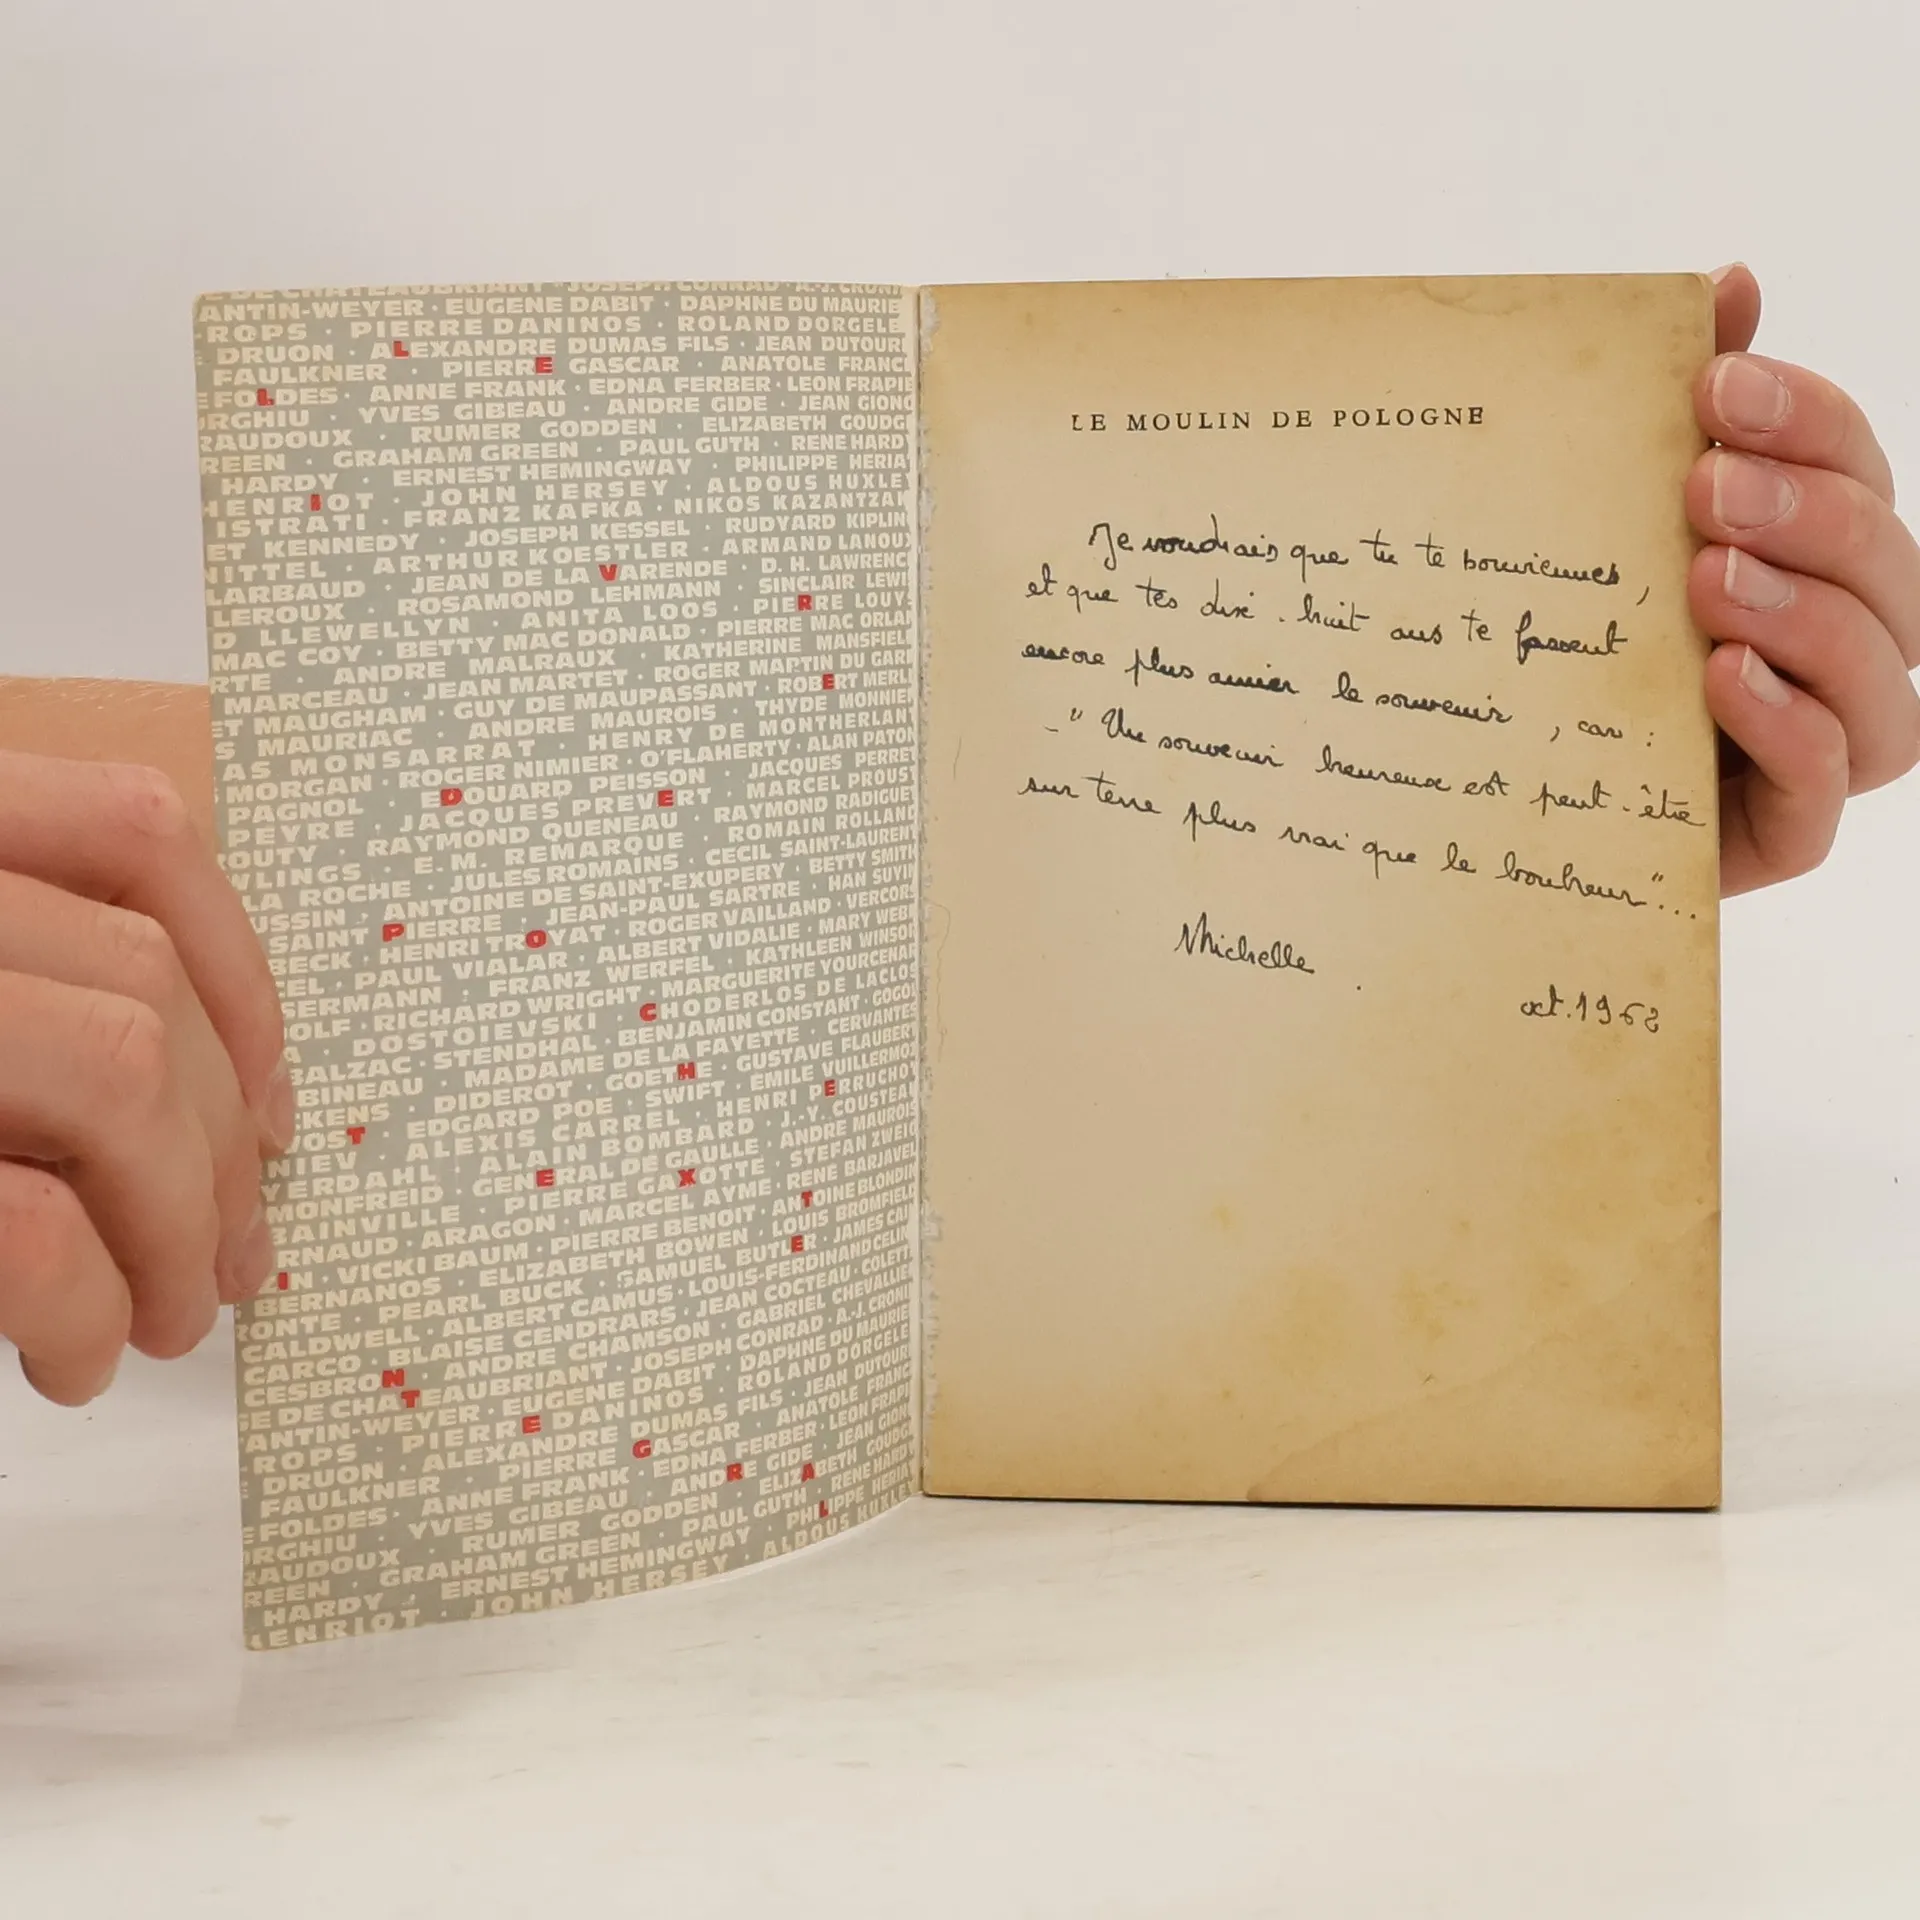 E DE CHATEAUBRIANT · JOSEPH CONRAD · A.-J. CRONI
ANTIN-WEYER · EUGENE DABIT · DAPHNE DU MAURIE
ROPS · PIERRE DANINOS · ROLAND DORGELE
DRUON · ALEXANDRE DUMAS FILS · JEAN DUTOUR
FAULKNER · PIERRE GASCAR · ANATOLE FRANCE
E FOLDES · ANNE FRANK · EDNA FERBER · LEON FRAPIE
ORGHIU · YVES GIBEAU · ANDRE GIDE · JEAN GIONO
RAUDOUX · RUMER GODDEN · ELIZABETH GOUDGE
REEN · GRAHAM GREEN · PAUL GUTH · RENE HARDY
HARDY · ERNEST HEMINGWAY · PHILIPPE HERIAT
HENRIOT · JOHN HERSEY · ALDOUS HUXLEY
ISTRATI · FRANZ KAFKA · NIKOS KAZANTZAK
ET KENNEDY · JOSEPH KESSEL · RUDYARD KIPLING
NITTEL · ARTHUR KOESTLER · ARMAND LANOUX
LARBAUD · JEAN DE LA VARENDE · D. H. LAWRENCE
LEROUX · ROSAMOND LEHMANN · SINCLAIR LEWIS
D LLEWELLYN · ANITA LOOS · PIERRE LOUYS
MAC COY · BETTY MAC DONALD · PIERRE MAC ORLAN
RTE · ANDRE MALRAUX · KATHERINE MANSFIELD
MARCEAU · JEAN MARTET · ROGER MARTIN DU GARD
ET MAUGHAM · GUY DE MAUPASSANT · ROBERT MERLE
S MAURIAC · ANDRE MAUROIS · THYDE MONNIER
AS MONSARRAT · HENRY DE MONTHERLANT
MORGAN · ROGER NIMIER · O'FLAHERTY · ALAN PATON
PAGNOL · EDOUARD PEISSON · JACQUES PERRET
PEYRE · JACQUES PREVERT · MARCEL PROUST
ROUTY · RAYMOND QUENEAU · RAYMOND RADIGUET
WLINGS · E. M. REMARQUE · ROMAIN ROLLAND
LA ROCHE · JULES ROMAINS · CECIL SAINT-LAURENT
USSIN · ANTOINE DE SAINT-EXUPERY · BETTY SMITH
SAINT PIERRE · JEAN-PAUL SARTRE · HAN SUYIN
BECK · HENRI TROYAT · ROGER VAILLAND · VERCORS
EL · PAUL VIALAR · ALBERT VIDALIE · MARY WEBB
SERMANN · FRANZ WERFEL · KATHLEEN WINSOR
OLF · RICHARD WRIGHT · MARGUERITE YOURCENAR
A · DOSTOIEVSKI · CHODERLOS DE LACLOS
BALZAC · STENDHAL · BENJAMIN CONSTANT · GOGOL
BINEAU · MADAME DE LA FAYETTE · CERVANTES
CKENS · DIDEROT · GOETHE · GUSTAVE FLAUBERT
VOST · EDGARD POE · SWIFT · EMILE VUILLERMOZ
NIEV · ALEXIS CARREL · HENRI PERRUCHOT
YERDAHL · ALAIN BOMBARD · J.-Y. COUSTEAU
MONFREID · GENERAL DE GAULLE · ANDRE MAUROIS
BAINVILLE · PIERRE GAXOTTE · STEFAN ZWEIG
RNAUD · ARAGON · MARCEL AYME · RENE BARJAVEL
ZIN · VICKI BAUM · PIERRE BENOIT · ANTOINE BLONDIN
BERNANOS · ELIZABETH BOWEN · LOUIS BROMFIELD
RONTE · PEARL BUCK · SAMUEL BUTLER · JAMES CAIN
CALDWELL · ALBERT CAMUS · LOUIS-FERDINAND CELINE
CARCO · BLAISE CENDRARS · JEAN COCTEAU · COLETTE
CESBRON · ANDRE CHAMSON · GABRIEL CHEVALLIER
SE DE CHATEAUBRIANT · JOSEPH CONRAD · A.-J. CRONI
ANTIN-WEYER · EUGENE DABIT · DAPHNE DU MAURIE
ROPS · PIERRE DANINOS · ROLAND DORGELE
DRUON · ALEXANDRE DUMAS FILS · JEAN DUTOUR
FAULKNER · PIERRE GASCAR · ANATOLE FRANCE
E FOLDES · ANNE FRANK · EDNA FERBER · LEON FRAPIE
ORGHIU · YVES GIBEAU · ANDRE GIDE · JEAN GIONO
RAUDOUX · RUMER GODDEN · ELIZABETH GOUDGE
REEN · GRAHAM GREEN · PAUL GUTH · RENE HARDY
HARDY · ERNEST HEMINGWAY · PHILIPPE HERIAT
ENRIOT · JOHN HERSEY · ALDOUS HUXLEY
LE MOULIN DE POLOGNE
Je voudrais que tu te souviennes,
et que tes dix-huit ans te fassent
encore plus aimer le souvenir, car :
- " Un souvenir heureux est peut-être
sur terre plus vrai que le bonheur "...
Michelle.
oct. 1962